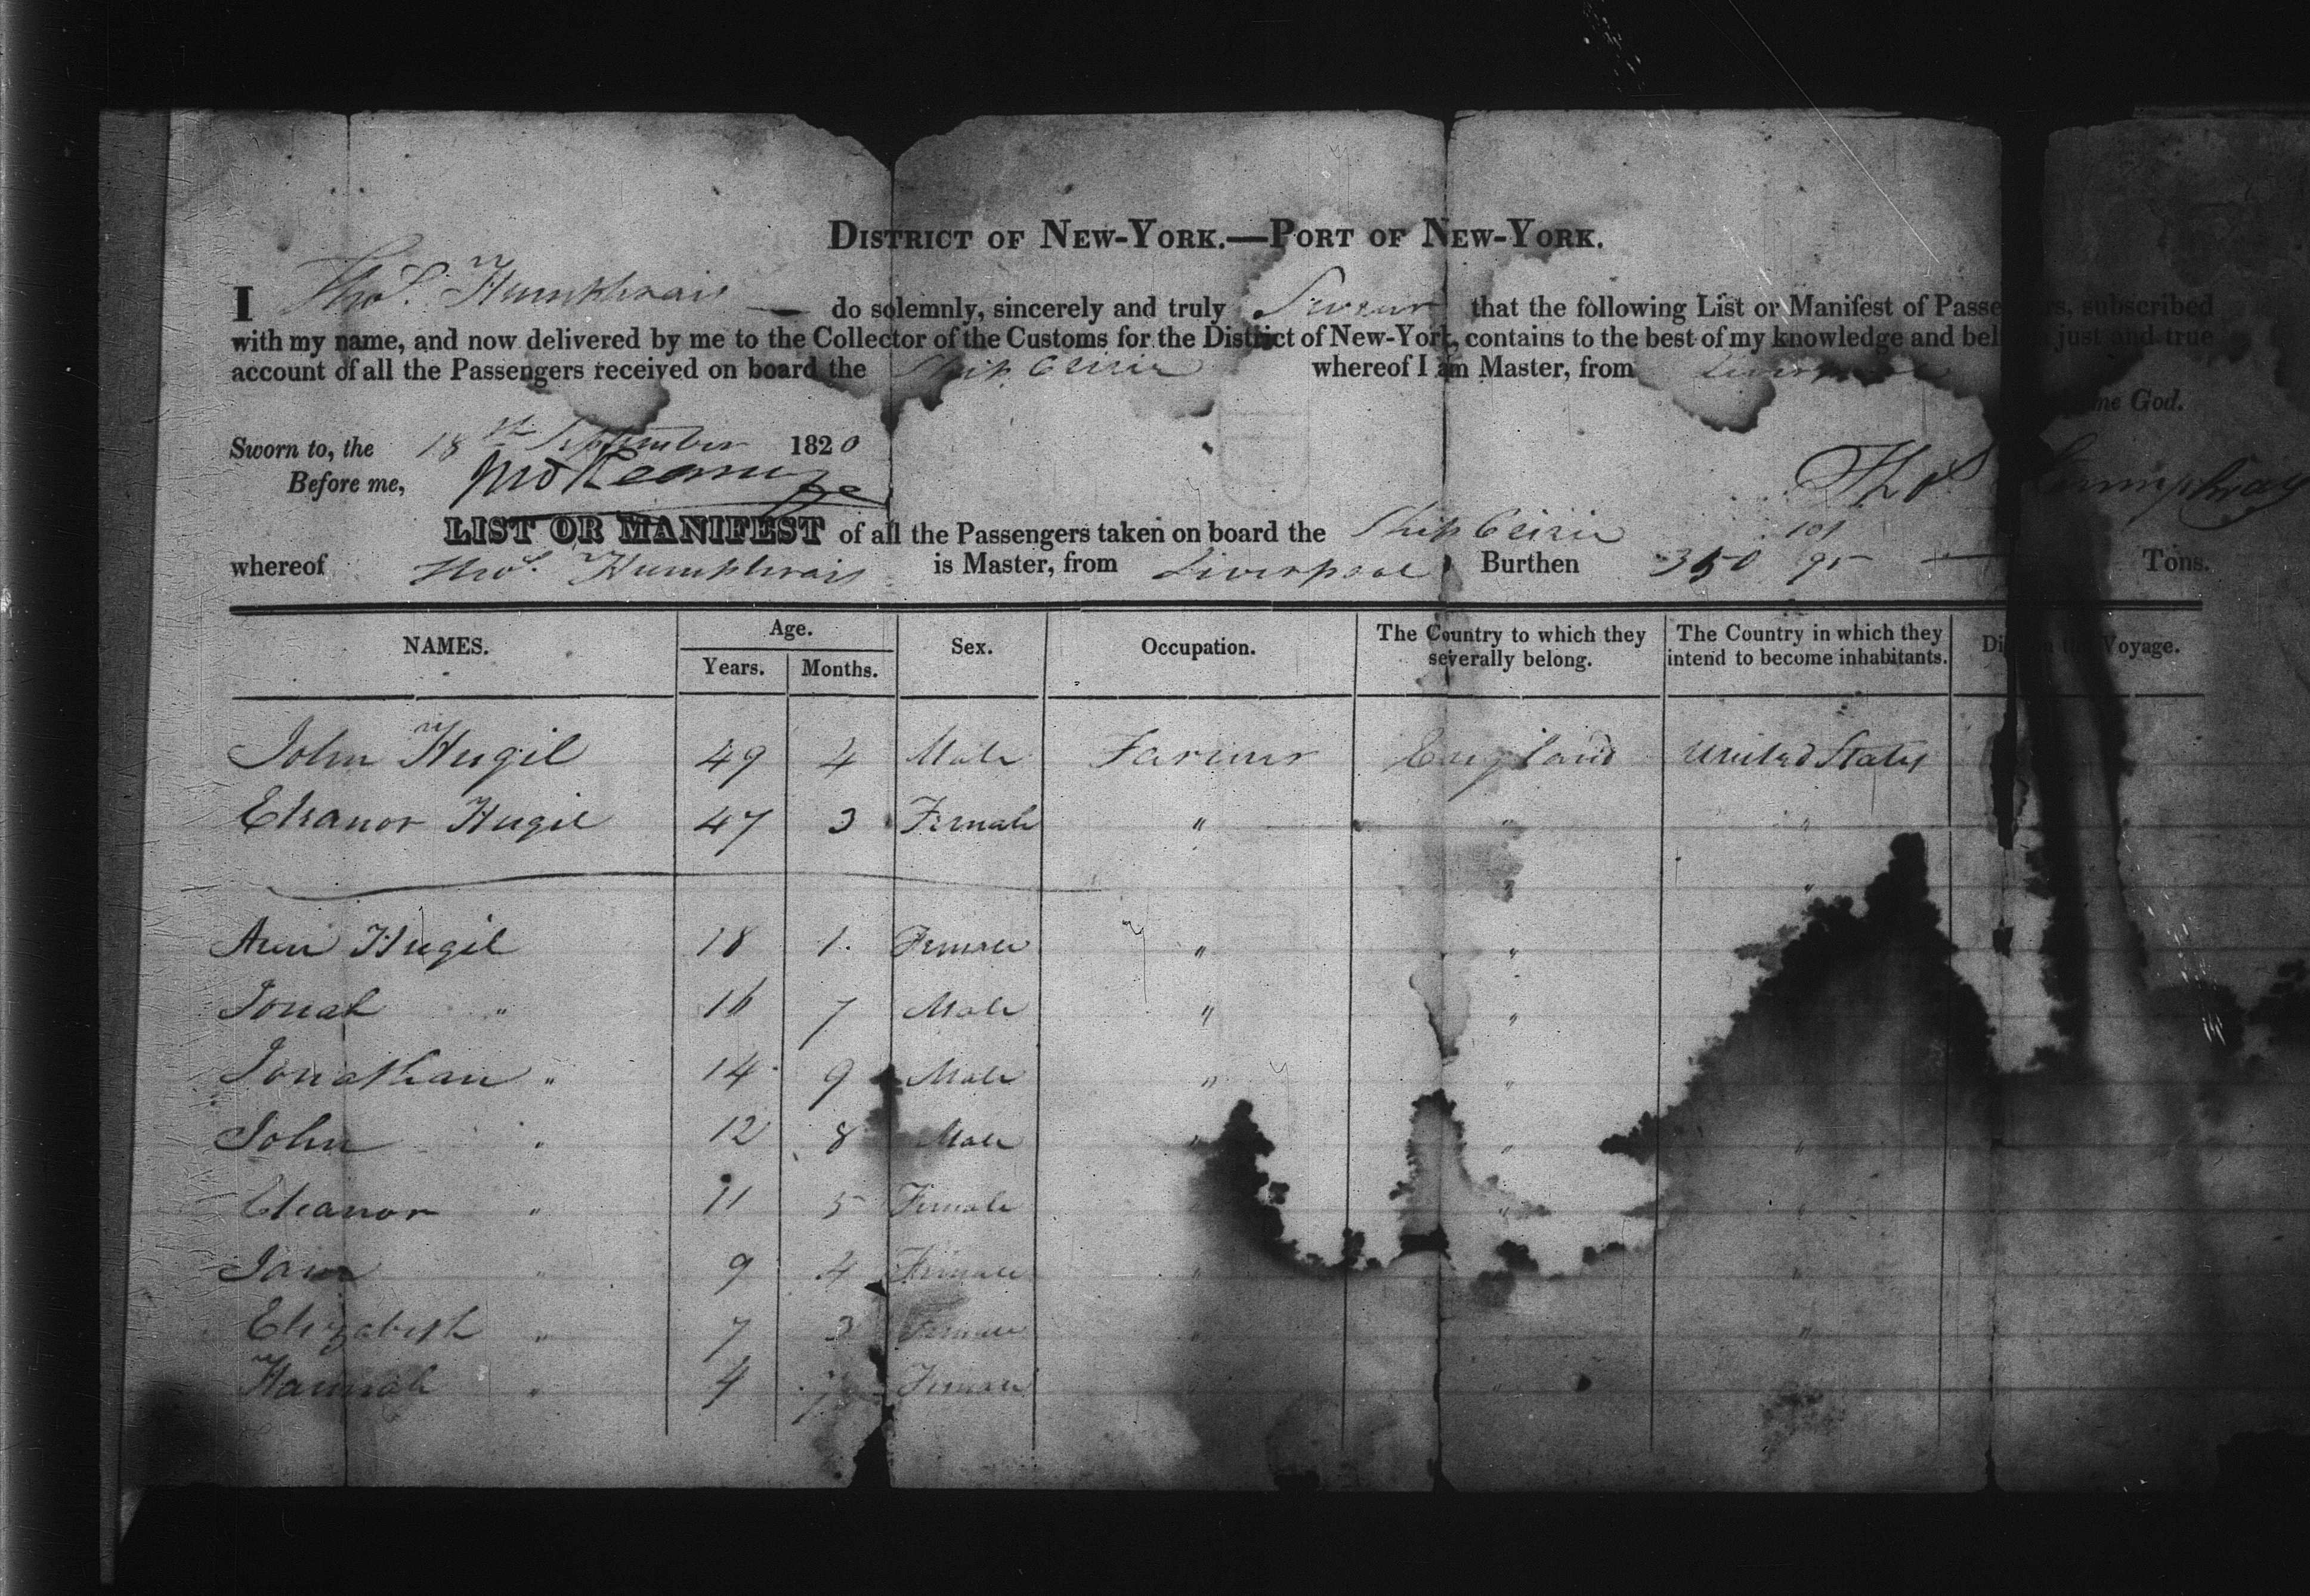 DISTRICT OF NEW-YORK.—PORT OF NEW-YORK.
I Thos. Humphrais do solemnly, sincerely and truly Swear that the following List or Manifest of Passe rs, subscribed
with my name, and now delivered by me to the Collector of the Customs for the District of New-York, contains to the best of my knowledge and bel a just and true
account of all the Passengers received on board the Ship whereof I am Master, from Liverpool
me God.
Sworn to, the 18th September 1820
Before me,
Thos Humphray
LIST OR MANIFEST of all the Passengers taken on board the Ship
whereof Thos. Humphrais is Master, from Liverpool Burthen 350 101/95 Tons.
NAMES. Age. Years. Months. Sex. Occupation. The Country to which they severally belong. The Country in which they intend to become inhabitants. Di on the Voyage.
John Hugil 49 4 Male Farmer England United States
Eleanor Hugil 47 3 Female " " "
" "
Ann Hugil 18 1 Female " "
Jonah " 16 7 Male " "
Jonathan " 14 9 Male " "
John " 12 8 Male " " "
Eleanor " 11 5 Female " " "
Jane " 9 4 Female " "
Elizabeth " 7 3 Female " " "
Hannah " 4 Female "